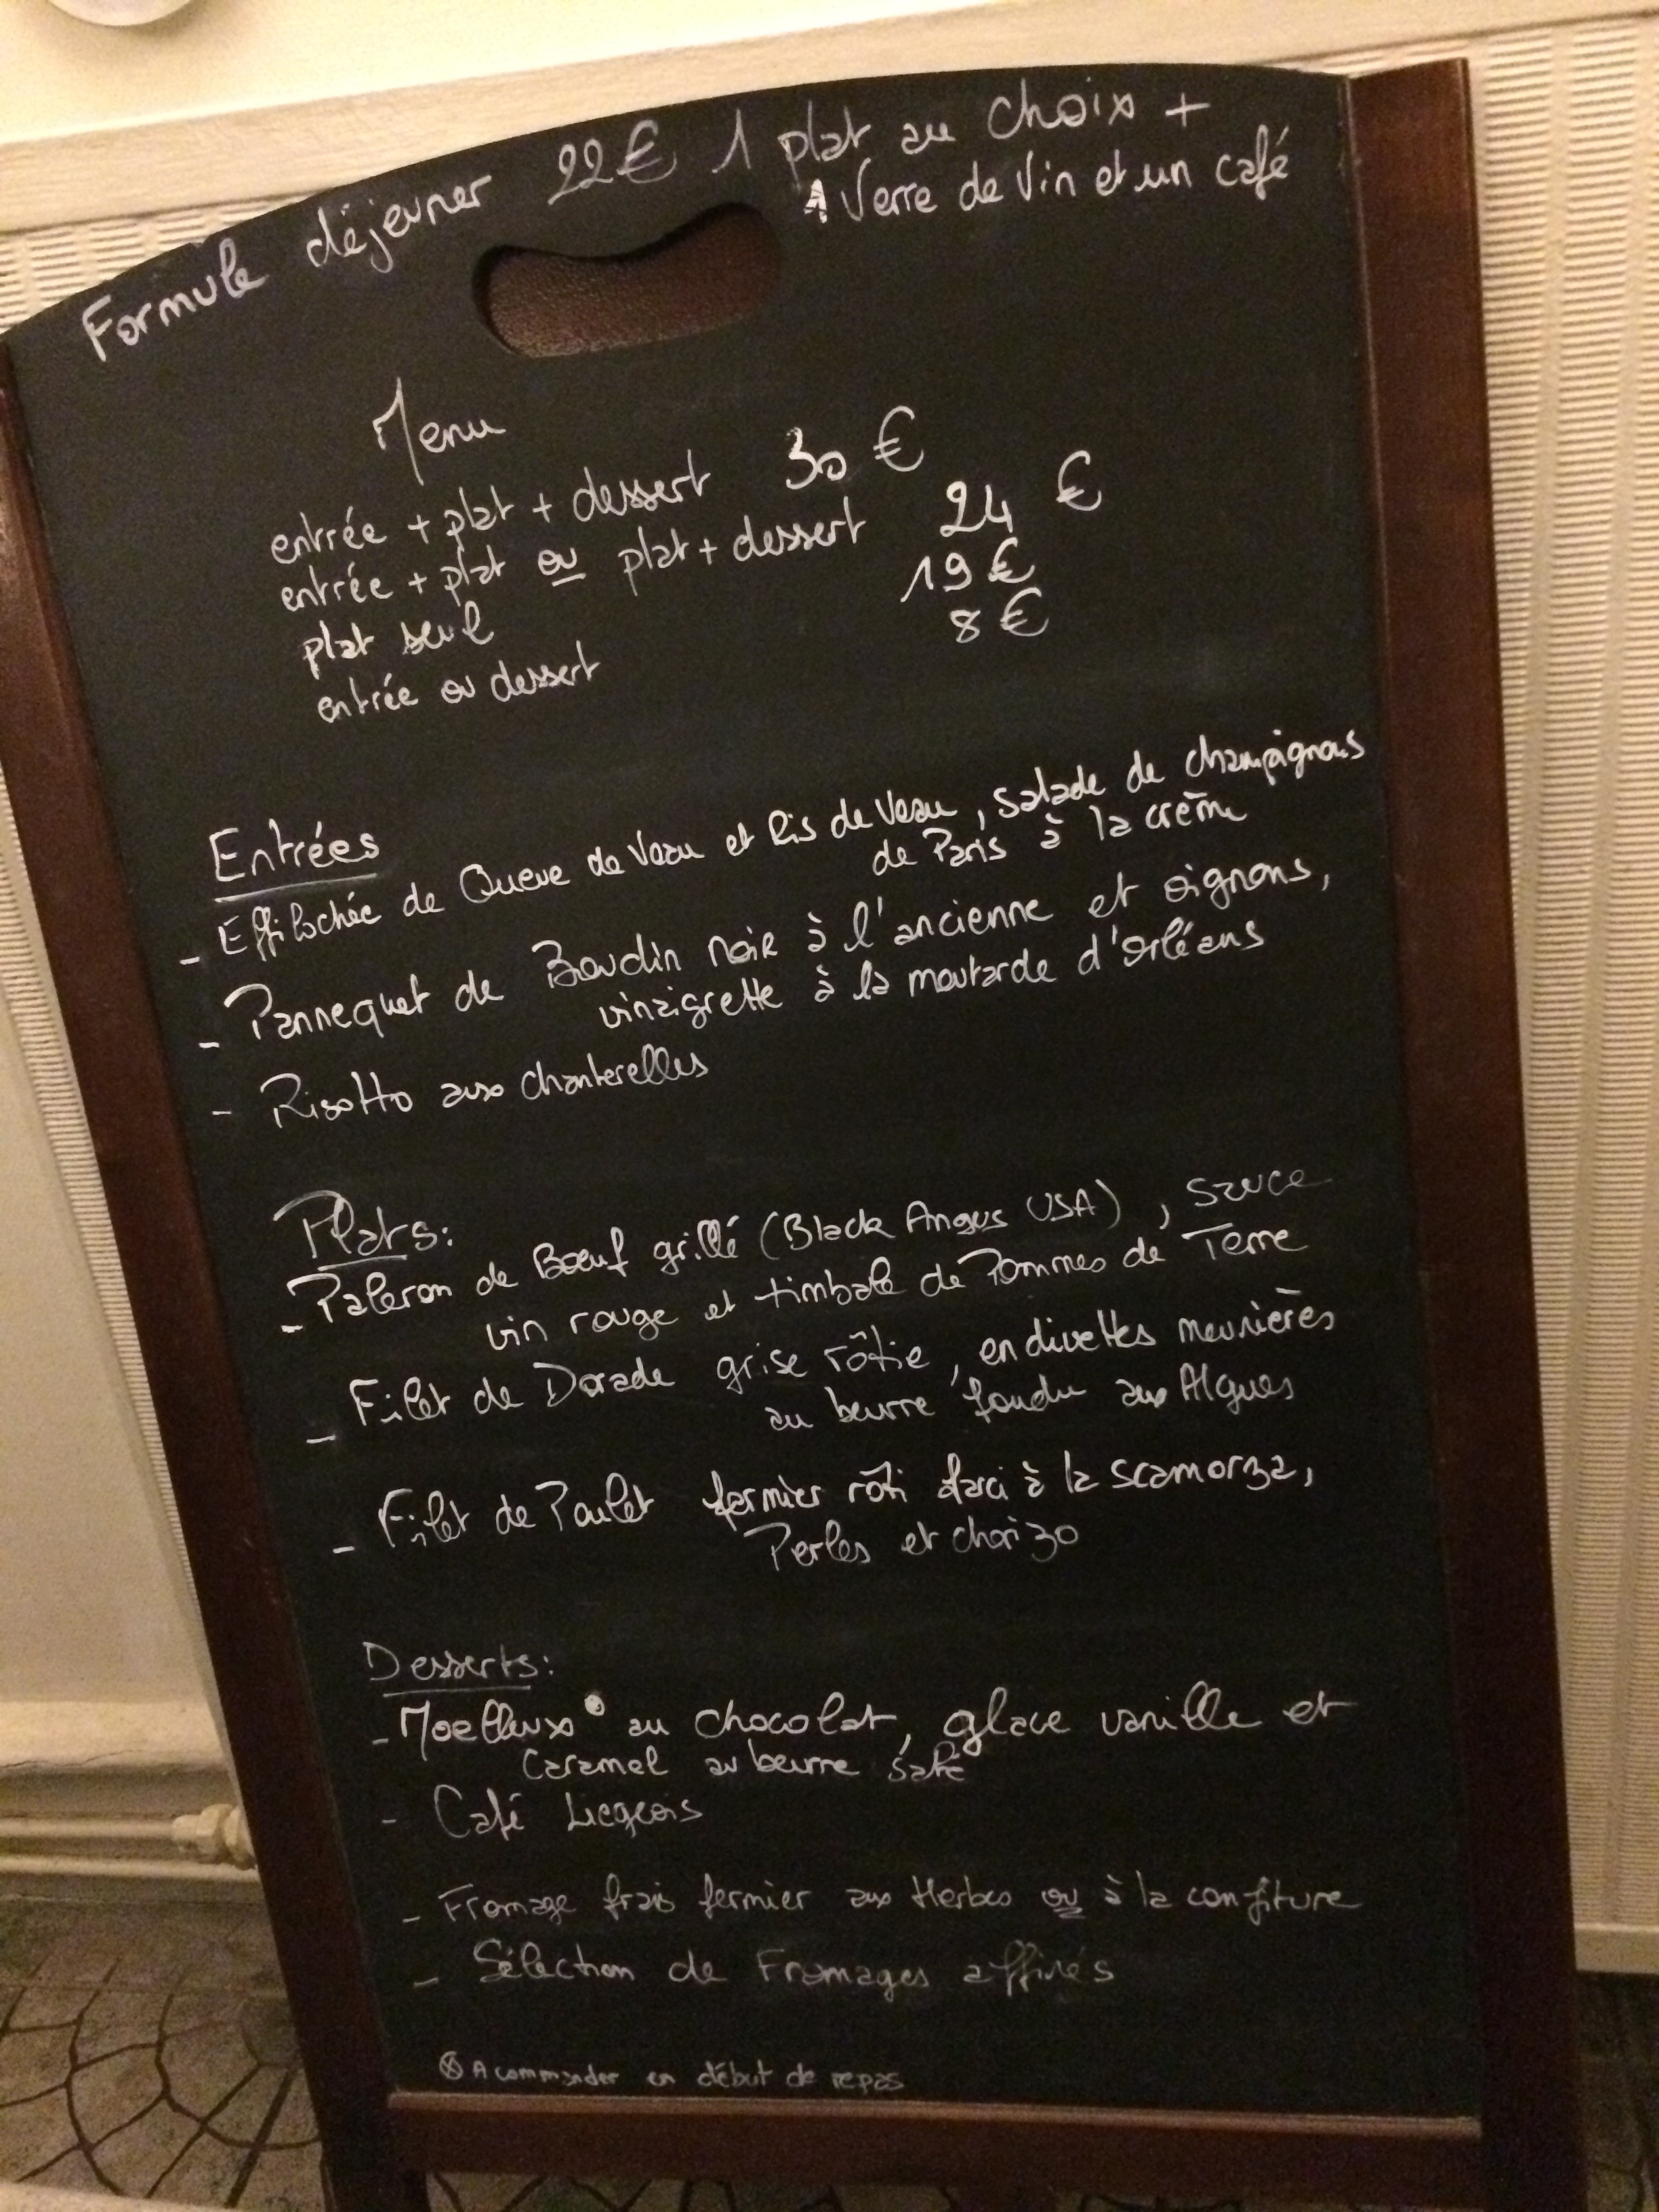 Formule déjeuner 22€ 1 plat au choix +
1 Verre de Vin et un café
Menu
entrée + plat + dessert 30 €
entrée + plat ou plat + dessert 24 €
plat seul 19 €
entrée ou dessert 8 €
Entrées
- Effilochée de Queue de Veau et Ris de Veau, salade de champignons
de Paris à la crème
- Pannequet de Boudin noir à l'ancienne et oignons,
vinaigrette à la moutarde d'Orléans
- Risotto aux Chanterelles
Plats:
- Paleron de Boeuf grillé (Black Angus USA), sauce
vin rouge et timbale de Pommes de Terre
- Filet de Dorade grise rôtie, endivettes meunières
au beurre fondu aux Algues
- Filet de Poulet fermier rôti farci à la scamorza,
Perles et chorizo
Desserts:
- Moelleux au chocolat, glace vanille et
Caramel au beurre salé
- Café Liegeois
- Fromage frais fermier aux Herbes ou à la confiture
- Sélection de Fromages affinés
⊗ A commander en début de repas